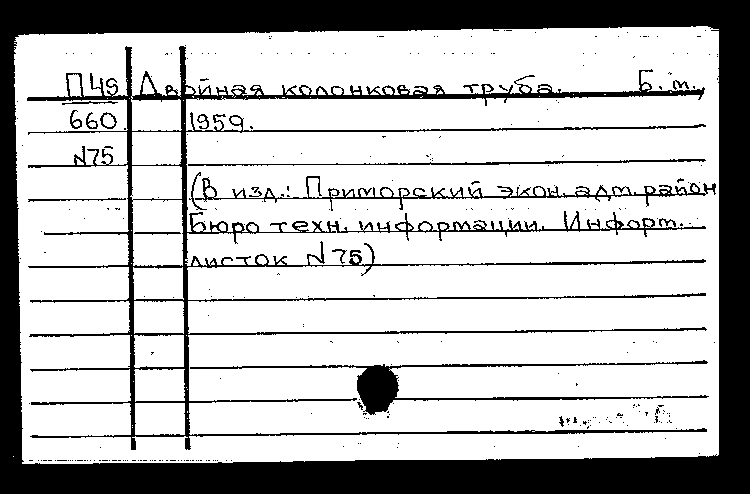 П49 Двойная колонковая труба. Б. м.,
660 1959.
N75
(В изд.: Приморский экон. адм. район
Бюро техн. информации. Информ.
листок N75)